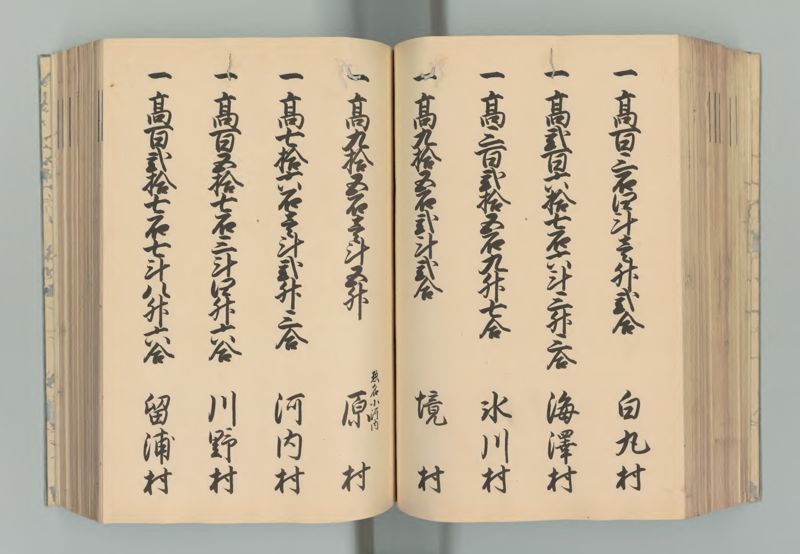 一 高百三石四斗壱升弐合 白丸村
一 高弐百六拾七石六斗三升六合 海澤村
一 高三百弐拾五石九升七合 氷川村
一 高九拾五石弐斗弐合 境村
一 高九拾五石壱斗五升 原村
一 高七拾六石壱斗弐升三合 河内村
一 高百五拾七石三斗四升六合 川野村
一 高百弐拾七石七斗八升六合 留浦村